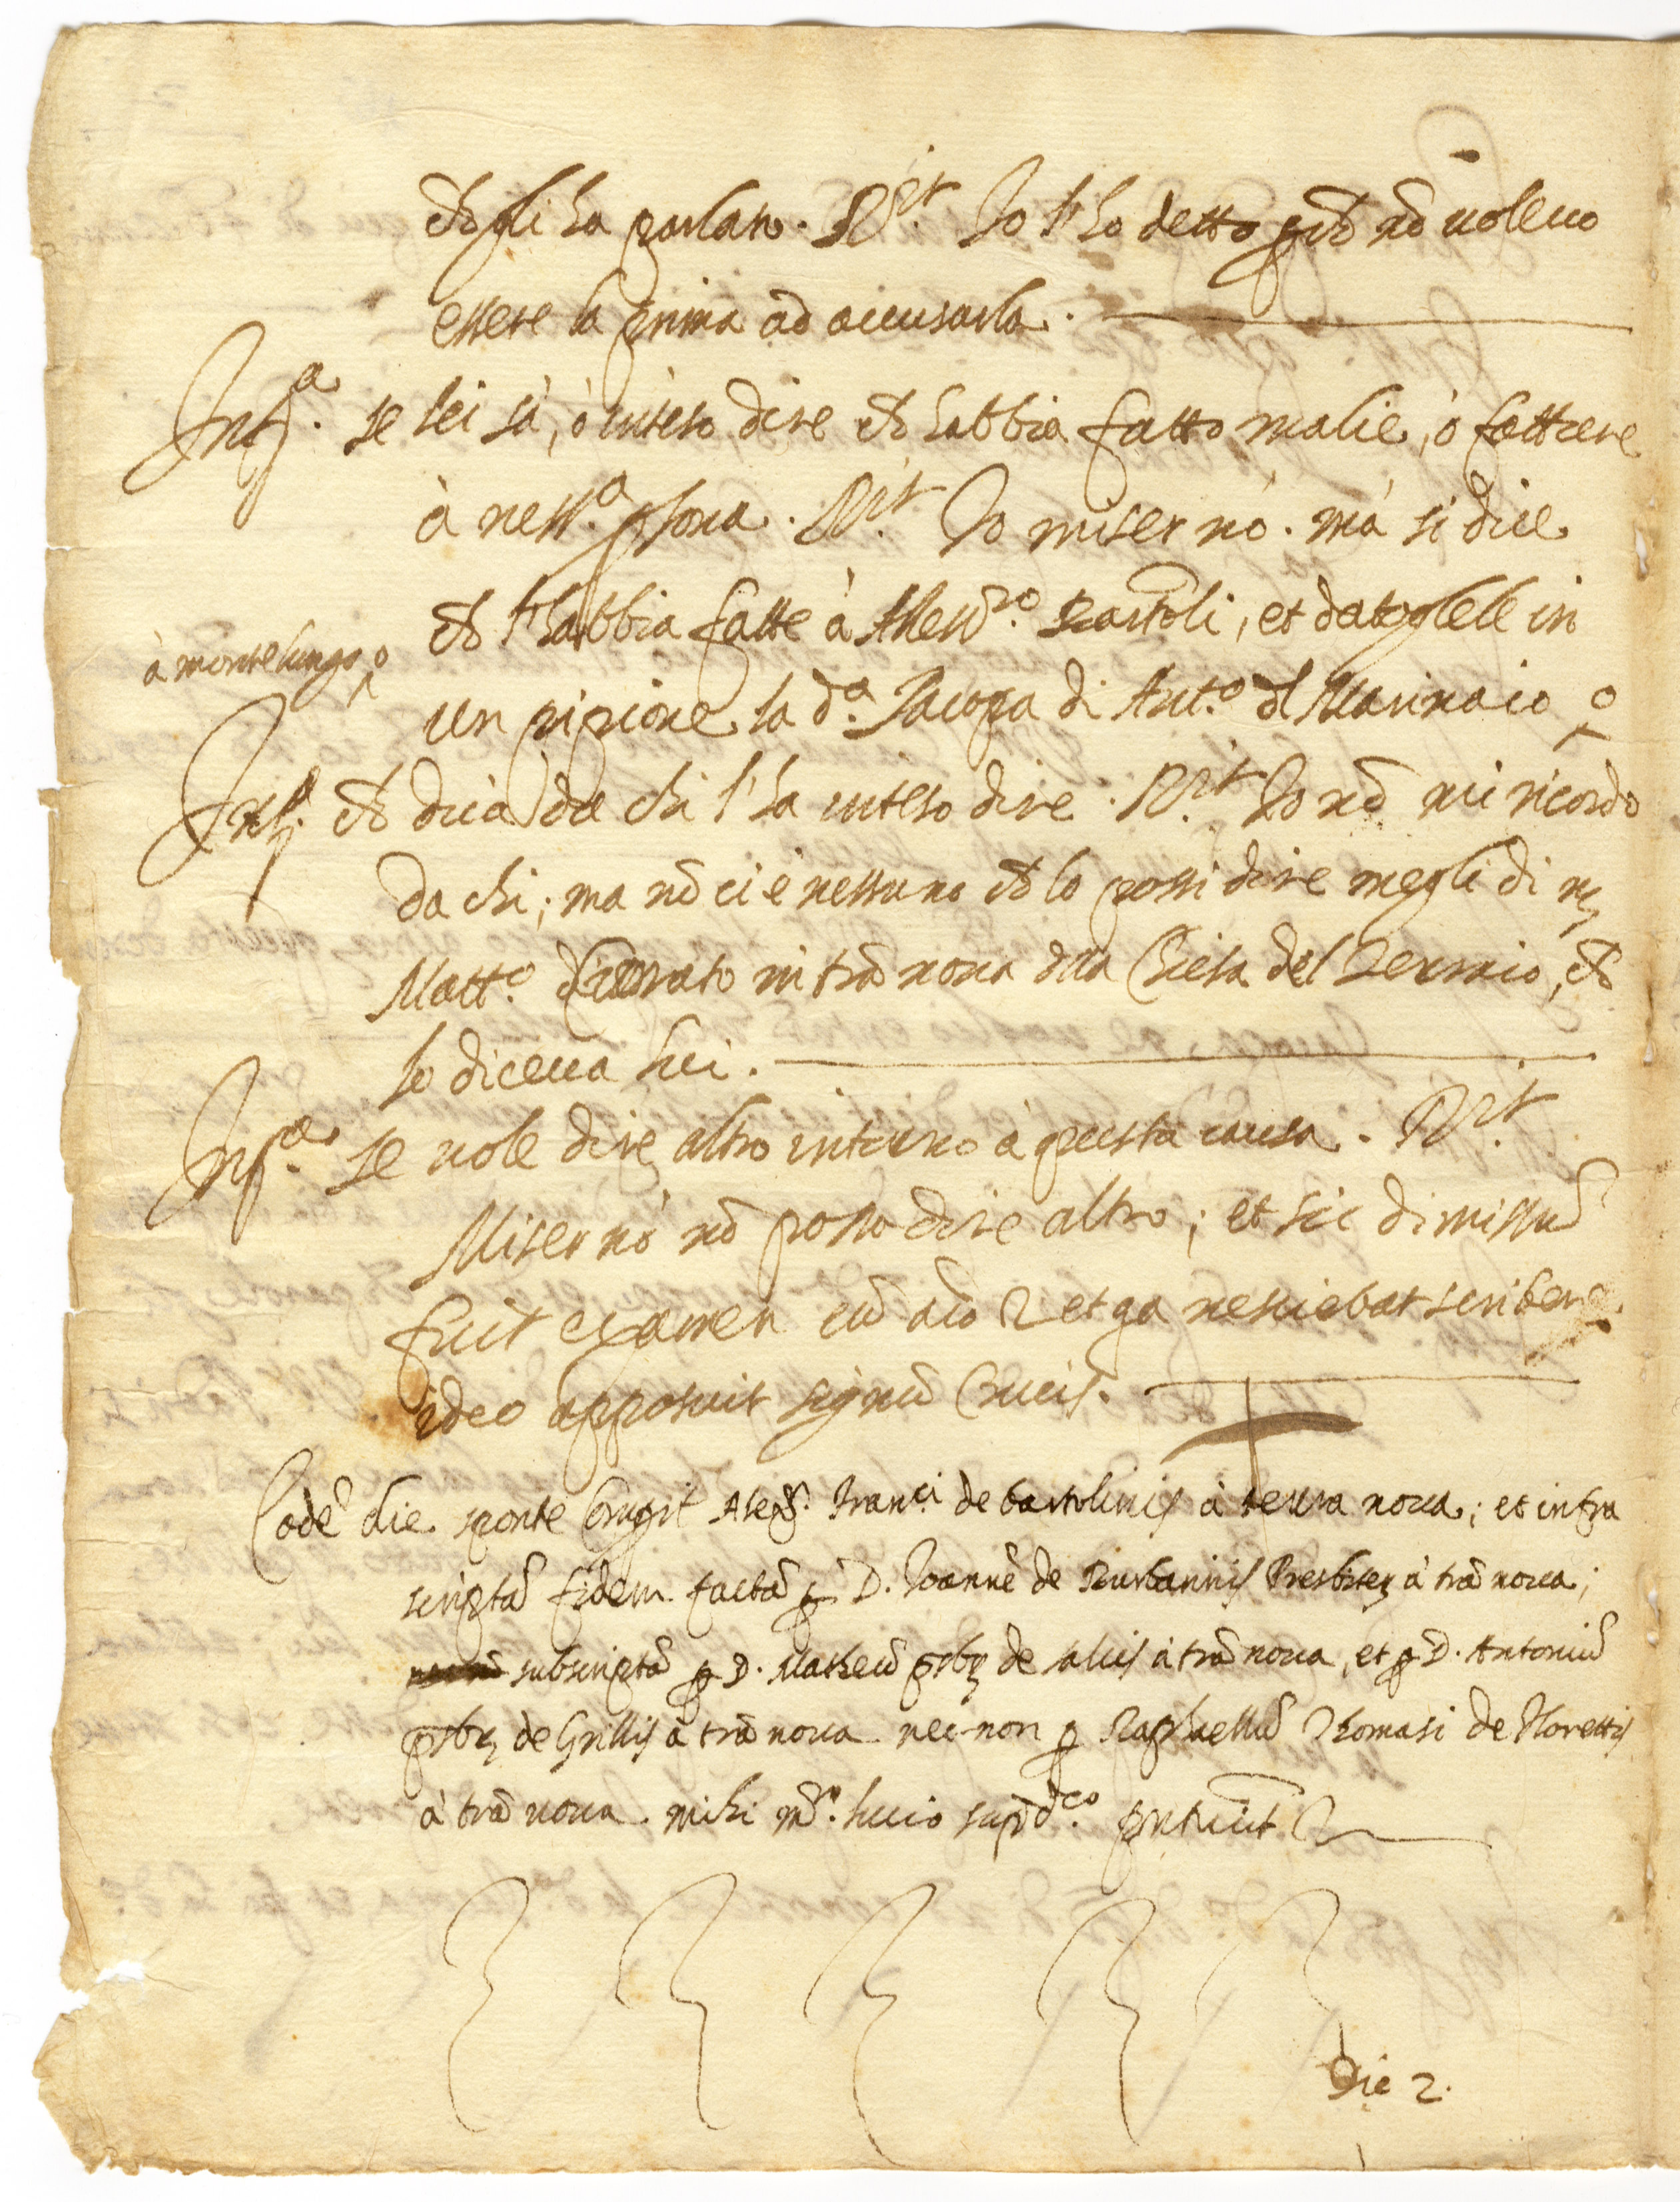 ch gli ha parlato. Rit Io l'ho detto pchè nō voleuo
essere la prima ad accusarla.
Int.a se lei sà, ò inteso dire ch habbia fatto malie, ò fattiere
à ness.a psona. Rit Io miser nò. mà si dice
ch l'habbia fatte à Aless.ro Bartoli, et datoglele in
à montelungo
un pipione la d.a Jacopa di Ant.o dl Marinaio
Int.a ch dica da chi l'ha inteso dire. Rit Io nō mi ricordo
da chi; ma nō ci è nessuno ch lo possi dire megli di
Matt.o in trā noua dlla Chiesa del, ch
lo diceua lui.
Int.a se uole dire altro intorno à questa causa. Rit
Miser nò nō posso dire altro; et sic dimissū
fuit examen cū et qa nesciebat scribere
ideo apposuit signū Crucis.
Eodē die sponte Aleṣṣ. Franc.i de bartolinis à terra noua; et infra
scriptā fidem factā p D. Joannē de Presbiter à trā noua;
subscriptā p D. Matheū prbr de à trā noua, et p D. Antoniū
prbr de Grillis à trā noua nec non p Raphaellū Thomasi de Florettis
à trā noua. mihi supd.co pntauit
Die 2.